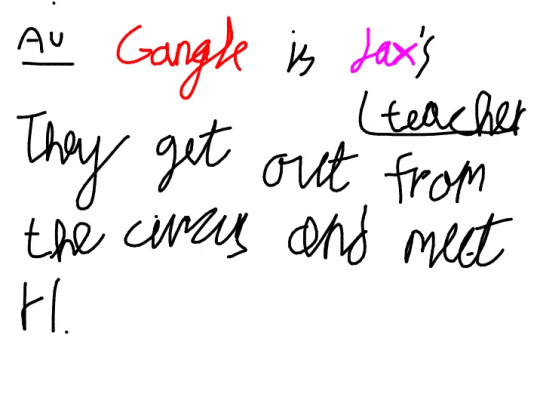 AU Gangle is Jax's
(teacher
They get out from
the circus and meet